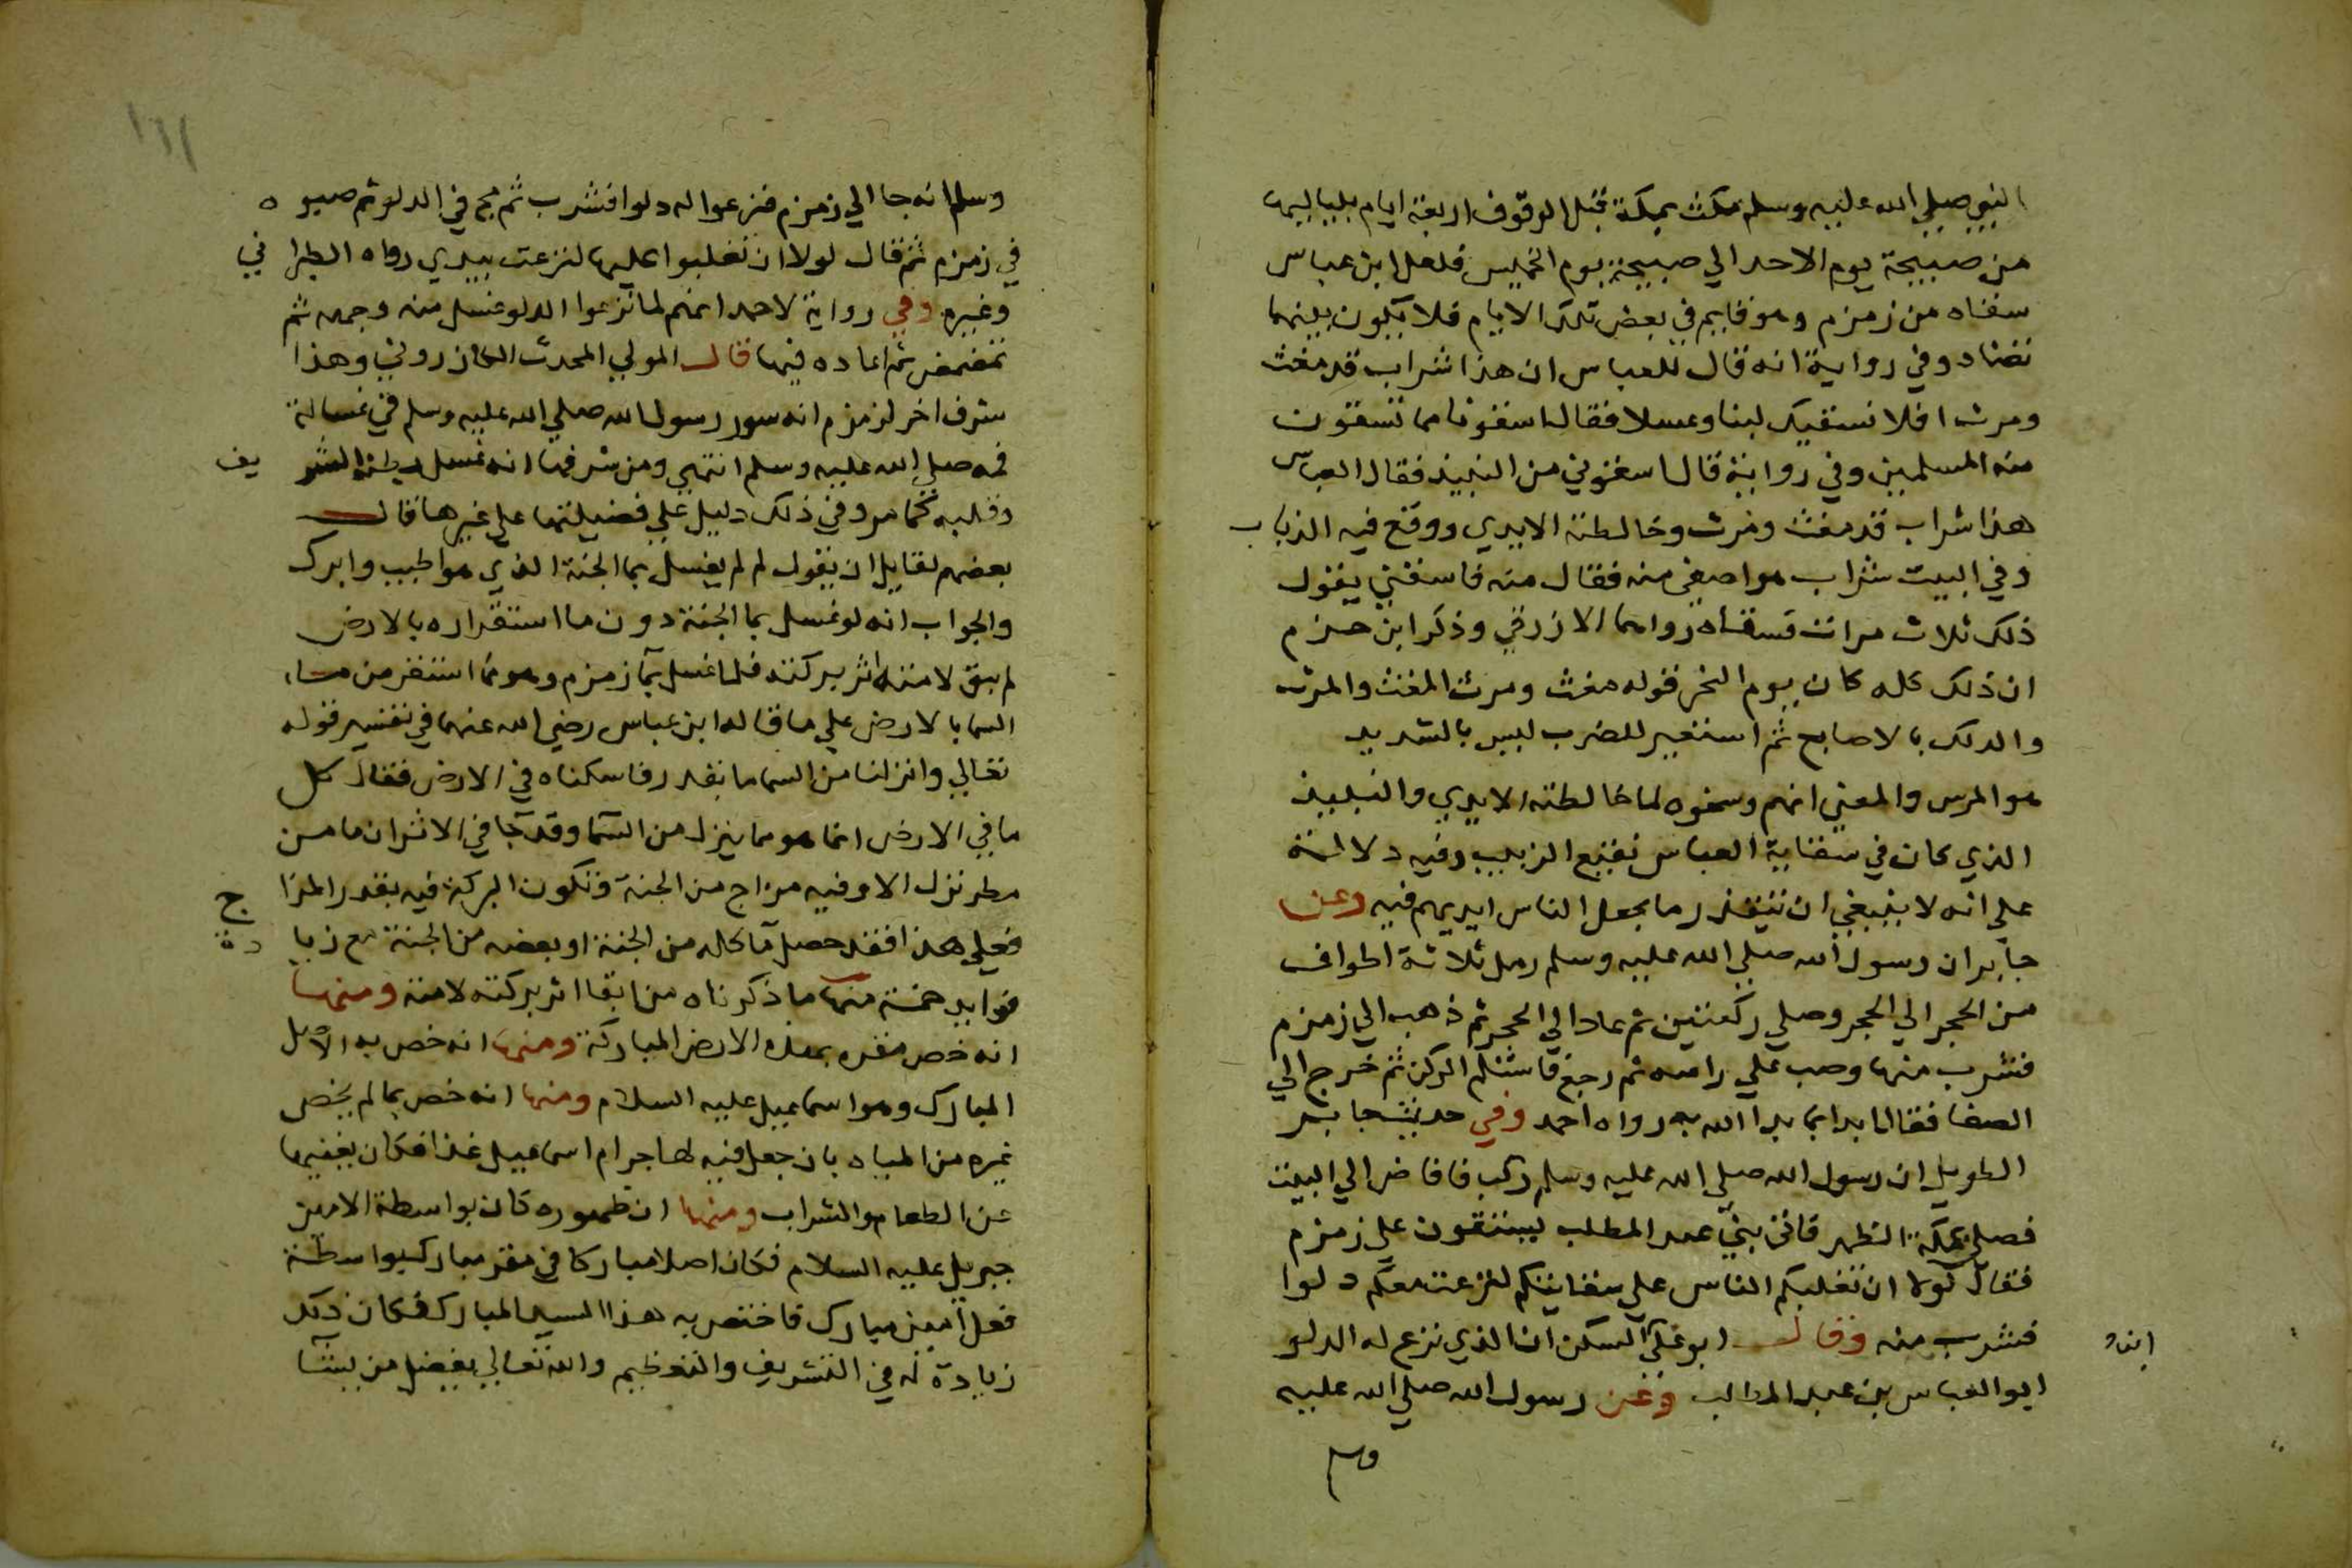 النبي صلي الله عليه وسلم مكث بمكة قبل الوقوف اربعة ايام بلياليها
من صبيحة يوم الاحد الي صبيحة يوم الخميس فلعل ابن عباس
سقاه من زمزم وهو قايم في بعض تلك الايام فلا يكون بينهما
تضاد وفي رواية انه قال للعباس ان هذا شراب قد مغث
ومرث افلا نسقيك لبنا وعسلا فقال اسقونا مما تسقون
منه المسلمين وفي رواية قال اسقوني من النبيذ فقال العباس
هذا شراب قد مغث ومرث وخالطته الايدي ووقع فيه الذباب
وفي البيت شراب هو اصفي منه فقال منه فاسقني يقول
ذلك ثلاث مرات فسقاه رواهما الازرقي وذكر ابن حزم
ان ذلك كله كان يوم النحر قوله مغث ومرث المغث والمرث
والدلك بالاصابع ثم استعير للضرب ليس بالشديد
هو المرس والمعني انهم وسخوه لما خالطته الايدي والنبيذ
الذي كان في سقاية العباس نقيع الزبيب وفيه دلالة
علي انه لا ينبغي ان تتقذر ما يجعل الناس ايديهم فيه وعن
جابر ان رسول الله صلي الله عليه وسلم رمل ثلاثة اطواف
من الحجر الي الحجر وصلي ركعتين ثم عاد الي الحجر ثم ذهب الي زمزم
فشرب منها وصب علي راسه ثم رجع فاستلم الركن ثم خرج الي
الصفا فقال ابدا بما بدا الله به رواه احمد وفي حديث جابر
الطويل ان رسول الله صلي الله عليه وسلم ركب فافاض الي البيت
فصلي بمكة الظهر فاتي بني عبد المطلب يستقون علي زمزم
فقال لولا ان تغلبكم الناس علي سقايتكم لنزعت معكم دلوا
فشرب منه وقال ابو علي السكن ان الذي نزع له الدلو
ابو العباس بن عبد المطلب وعن رسول الله صلي الله عليه
وسلم انه جا الي زمزم فنزعوا له دلوا فشرب ثم مج في الدلو ثم صبوه
في زمزم ثم قال لولا ان تغلبوا عليها لنزعت بيدي رواه الطبراني
وغيره وفي رواية لاحمد انهم لما نزعوا الدلو غسل منه وجهه ثم
تمضمض ثم اعاده فيها قال المولي المحدث الكازروني وهذا
شرف اخر لزمزم انه سور رسول الله صلي الله عليه وسلم في غسالة
فمه صلي الله عليه وسلم انتهي ومن شرفها انه غسل بطنه الشريف
وقلبه كما مر وفي ذلك دليل علي فضيلتها علي غيرها قال
بعضهم لقايل ان يقول لم لم يغسل بما الجنة الذي هو اطيب وابرك
والجواب انه لو غسل بما الجنة دون ما استقراره بالارض
لم يبق لامته اثر بركته فلما غسل بما زمزم وهو مما استقر من ماء
السما بالارض علي ما قاله ابن عباس رضي الله عنهما في تفسير قوله
تعالي وانزلنا من السما ما بقدر فاسكناه في الارض فقال كل
ما في الارض انما هو مما ينزل من السما وقد جا في الاثر ان ما من
مطر نزل الا وفيه مزاج من الجنة وتكون البركة فيه بقدر المزاج
فعلي هذا فقد حصل ما كله من الجنة او بعضه من الجنة مع زيادة
فوايد خمسة منها ما ذكرناه من ابقا اثر بركته لامته ومنها
انه خص مقره بهذه الارض المباركة ومنها انه خص به الاصل
المبارك وهو اسماعيل عليه السلام ومنها انه خص بما لم يخص
غيره من المياه بان جعل فيه لهاجر ام اسماعيل غذا فكان يغنيها
عن الطعام والشراب ومنها ان ظهوره كان بواسطة الامين
جبريل عليه السلام فكان اصلا مباركا في مقر مبارك بواسطة
فعل امين مبارك فاختص به هذا السيد المبارك فكان ذلك
زيادة له في التشريف والتعظيم والله تعالي يفضل من يشا